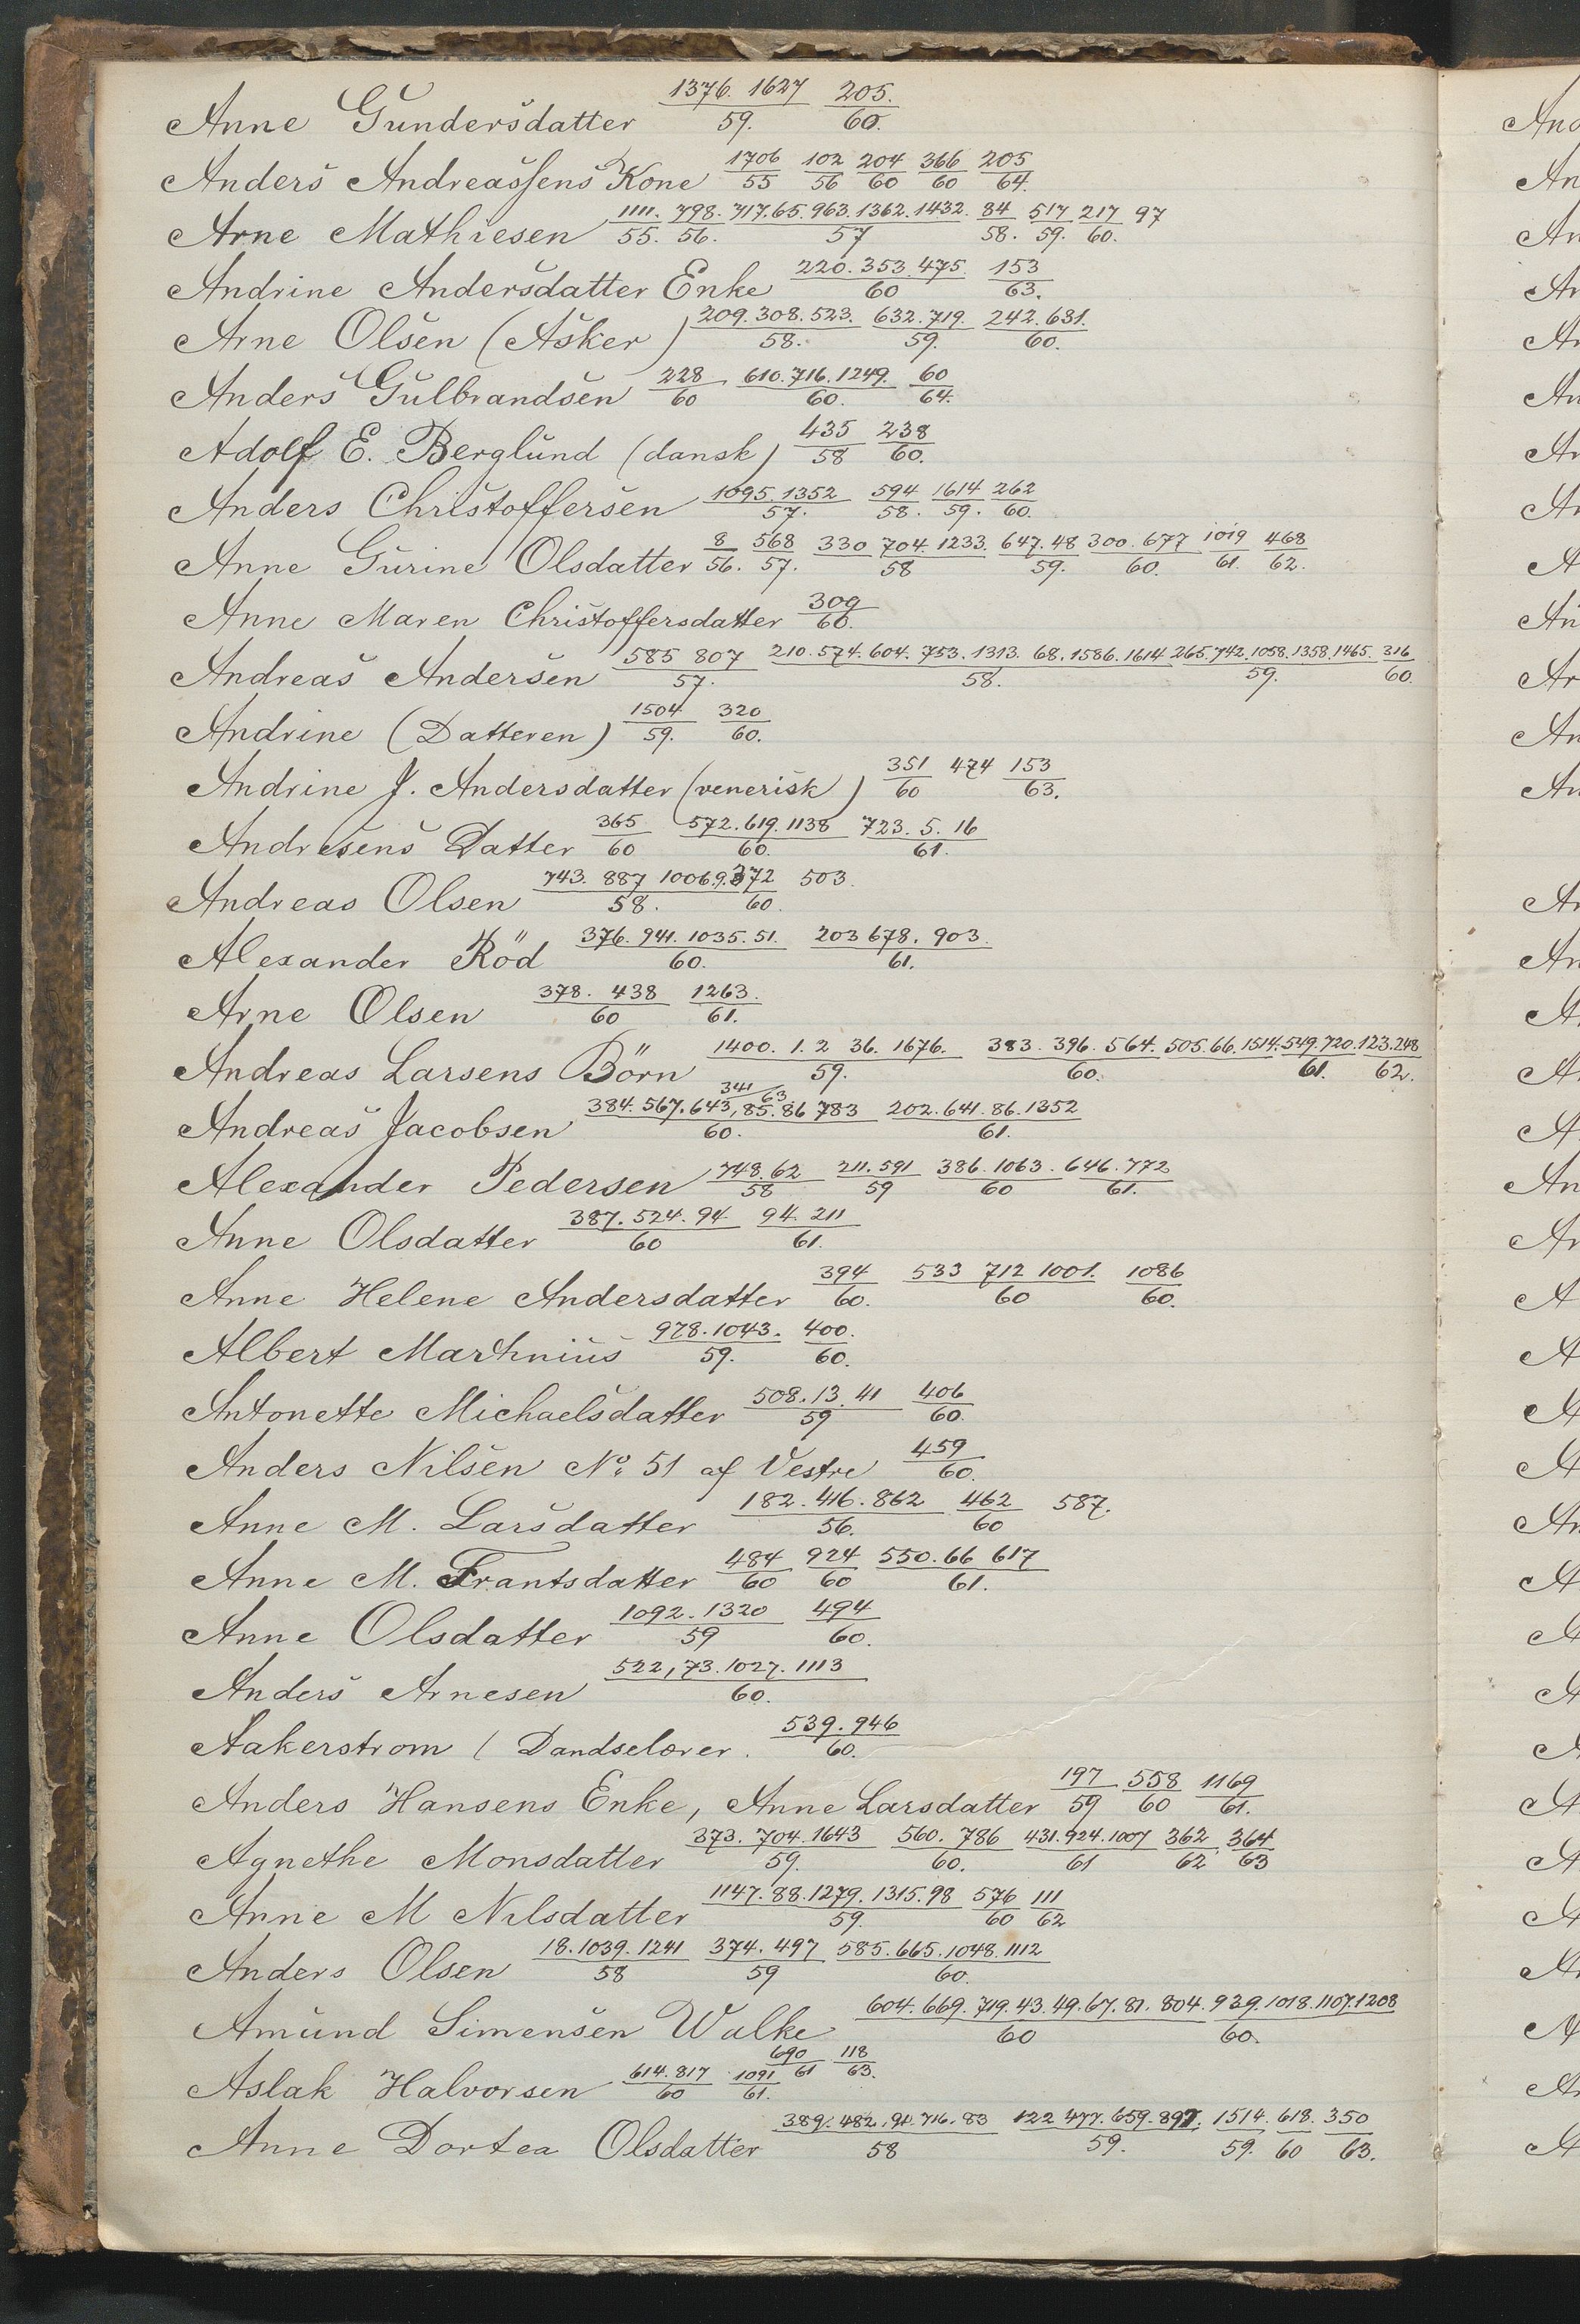 Anne Gundersdatter 1376. 1627/59. 205./60.
Anders Andreassens Kone 1706/55 102/56 204/60 366/60 205/64.
Arne Mathiesen 1111./55. 798./56. 717.65.963.1362.1432./57 84/58. 517/59. 217/60. 97
Andrine Andersdatter Enke 220.353.475/60 153/63.
Arne Olsen (Asker) 209.308.523./58. 632.719./59. 242.631./60.
Anders Gulbrandsen 228/60 610.716.1249./60. 60/64.
Adolf E. Berglund (dansk) 435/58 238/60.
Anders Christoffersen 1095.1352/57. 594/58. 1614/59. 262/60.
Anne Gurine Olsdatter 8/56. 568/57. 330 704.1233./58 647.48/59. 300.677/60. 1019/61. 468/62.
Anne Maren Christoffersdatter 309/60.
Andreas Andersen 585 807/57. 210.574.604.753.1313.68.1586.1614/58. 265.742.1058.1358.1465./59. 316/60.
Andrine (Datteren) 1504/59. 320/60.
Andrine J. Andersdatter (venerisk) 351/60 474 153/63.
Andresens Datter 365/60 572.619.1138/60. 723.5.16/61.
Andreas Olsen 743. 887 1006.9./58. 372/60. 503.
Alexander Röd 376.941.1035.51./60. 203 678. 903./61.
Arne Olsen 378. 438/60 1263./61.
Andreas Larsens Börn 1400. 1. 2 36. 1676./59. 383. 396. 564. 505.66.1514./60. 549.720./61. 123.248/62.
341/63.
Andreas Jacobsen 384.567.643,85.86 783/60. 202.641.86.1352/61.
Alexander Pedersen 748.62/58 211.591/59 386.1063./60 646.772/61.
Anne Olsdatter 387.524.94/60 94.211/61.
Anne Helene Andersdatter 394/60. 533 712 1001./60 1086/60.
Albert Marthnius 978.1043./59. 400./60.
Antonette Michaelsdatter 508.13.41/59 406/60.
Anders Nilsen No. 51 af Vestre 459/60.
Anne M. Larsdatter 182.416.862/56. 462/60 587.
Anne M. Frantsdatter 484/60 924/60 550.66 617/61.
Anne Olsdatter 1092.1320/59 494/60.
Anders Arnesen 522,73.1027.1113/60.
Aakerstrom ( Dandselærer. 539.946/60.
Anders Hansens Enke, Anne Larsdatter 197/59 558/60 1169/61.
Agnethe Monsdatter 373. 704.1643/59. 560. 786/60. 431.924.1007/61 362/62 364/63
Anne M Nilsdatter 1147.88.1279.1315.98/59. 576/60 111/62
Anders Olsen 18.1039.1241/58 374.497/59 585.665.1048.1112/60.
Amund Simensen Walke 604.669.719.43.49.67.81.804./60 939.1018.1107.1208/60.
690/61 118/63.
Aslak Halvorsen 614.817/60 1091/61.
Anne Dortea Olsdatter 389.482.91.716.83/58 122 477.659.897./59. 1514/59. 618./60 350/63.